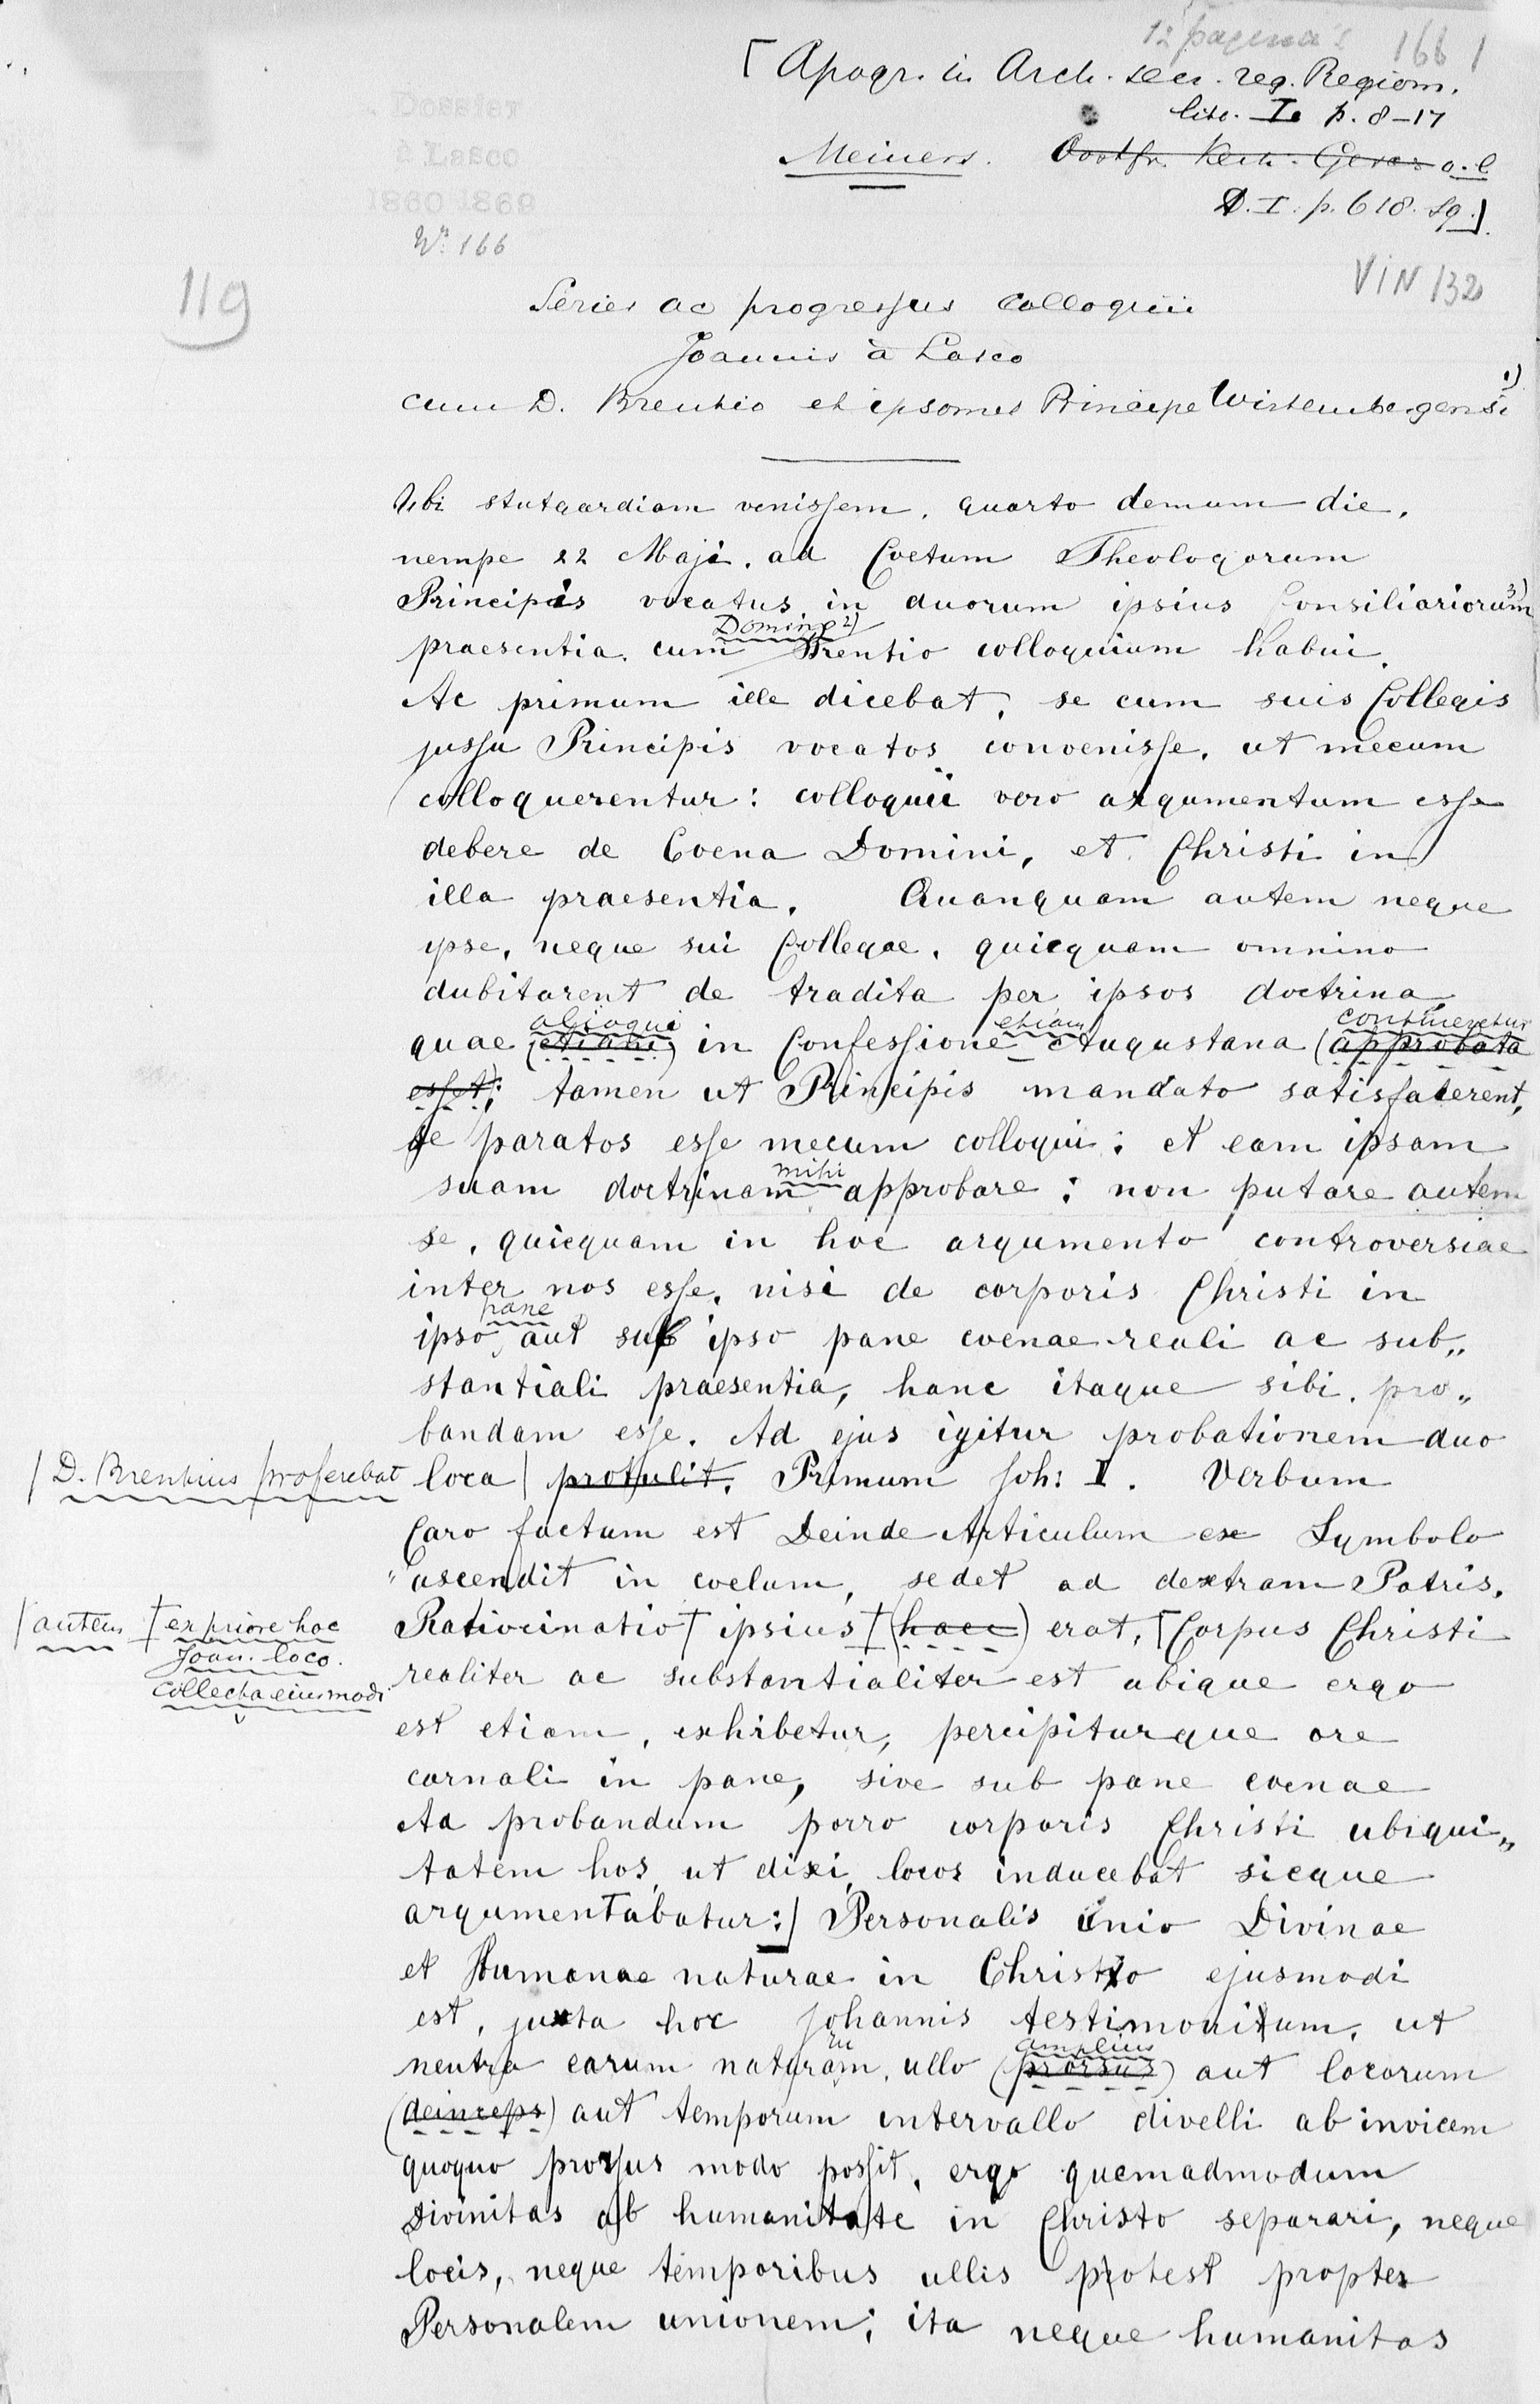 12 pagina's 166 1
[Apogr. in Arch. secr. reg. Regiom.
litt. I. p. 8–17
Meiners. Oostfr. Kerk. Gesch. a.l
D. I. p. 618. sq.]
Dossier
à Lasco
1860 1869
No. 166
VIN 132
119
Series ac progressus colloquii
Joannis à Lasco
cum D. Brentio et ipsomet Principe Wirtembergensi 1)
Ubi stutgardiam venissem, quarto demum die,
nempe 22 Maji, ad Coetum Theologorum
Principis vocatus in duorum ipsius Consiliariorum 3)
Domino 2)
praesentia, cum Brentio colloquium habui.
Ac primum ille dicebat, se cum suis Collegis
jussu Principis vocatos convenisse, ut mecum
colloquerentur: colloquii vero argumentum esse
debere de Coena Domini, et Christi in
illa praesentia. Quanquam autem neque
ipse, neque sui Collegae, quicquam omnino
dubitarent de tradita per ipsos doctrina,
alioqui etiam contineretur
quae (etiam) in Confessione Augustana (approbata
esset); tamen ut Principis mandato satisfacerent,
se paratos esse mecum colloqui; et eam ipsam
mihi
suam doctrinam approbare: non putare autem
se, quicquam in hoc argumento controversiae
inter nos esse, nisi de corporis Christi in
pane
ipso aut sub ipso pane coenae reali ac sub„
stantiali praesentia, hanc itaque sibi pro„
bandam esse. Ad ejus igitur probationem duo
| D. Brentius proferebat
loca | protulit. Primum Joh: I. Verbum
Caro factum est Deinde Articulum ex Symbolo
"ascendit in coelum, sedet ad dextram Patris.
| autem † ex priore hoc
Joan. loco.
collecta eiusmodi
Ratiocinatio | ipsius † (haec) erat, [Corpus Christi
realiter ac substantialiter est ubique ergo
est etiam, exhibetur, percipiturque ore
carnali in pane, sive sub pane coenae
Ad probandum porro corporis Christi ubiqui„
tatem hos, ut dixi, locos inducebat sicque
argumentabatur:] Personalis unio Divinae
et Humanae naturae in Christo ejusmodi
est, juxta hoc Johannis testimonium, ut
amplius
neutra earum naturam, ullo (prorsus) aut locorum
(deinceps) aut temporum intervallo divelli ab invicem
quoquo prorsus modo possit, ergo quemadmodum
Divinitas ab humanitate in Christo separari, neque
locis, neque temporibus ullis potest propter
Personalem unionem; ita neque humanitas